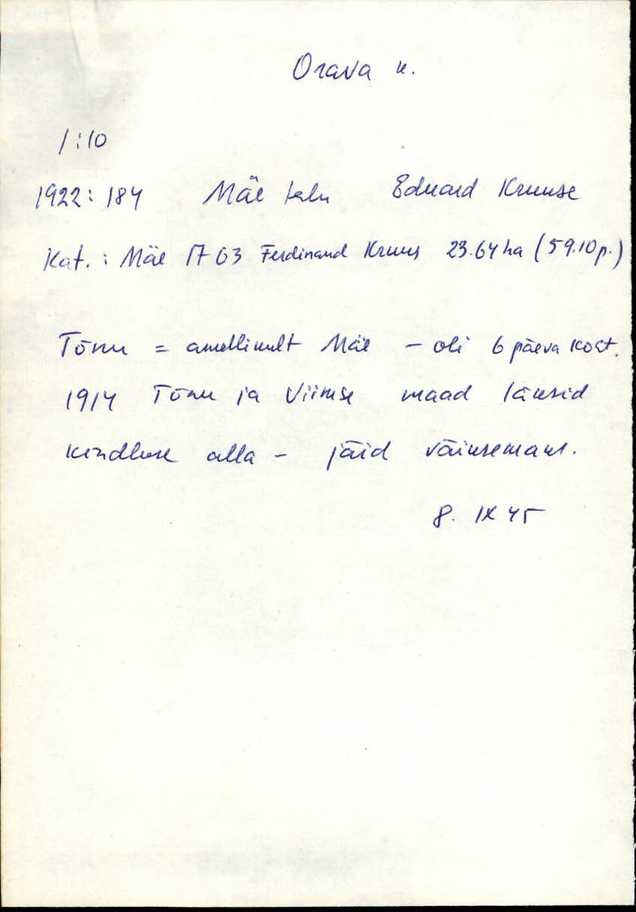 Orava k.
1:10
1922: 184 Mäe talu Eduard Kruuse
Kat.: Mäe 17 63 Ferdinand Kruus 23.64 ha (59.10 p.)
Tõnu = ametlikult Mäe - oli 6 päeva koht.
1914 Tõnu ja Viimse maad läksid
kindluse alla - jäid väiksemaks.
8. IX 45